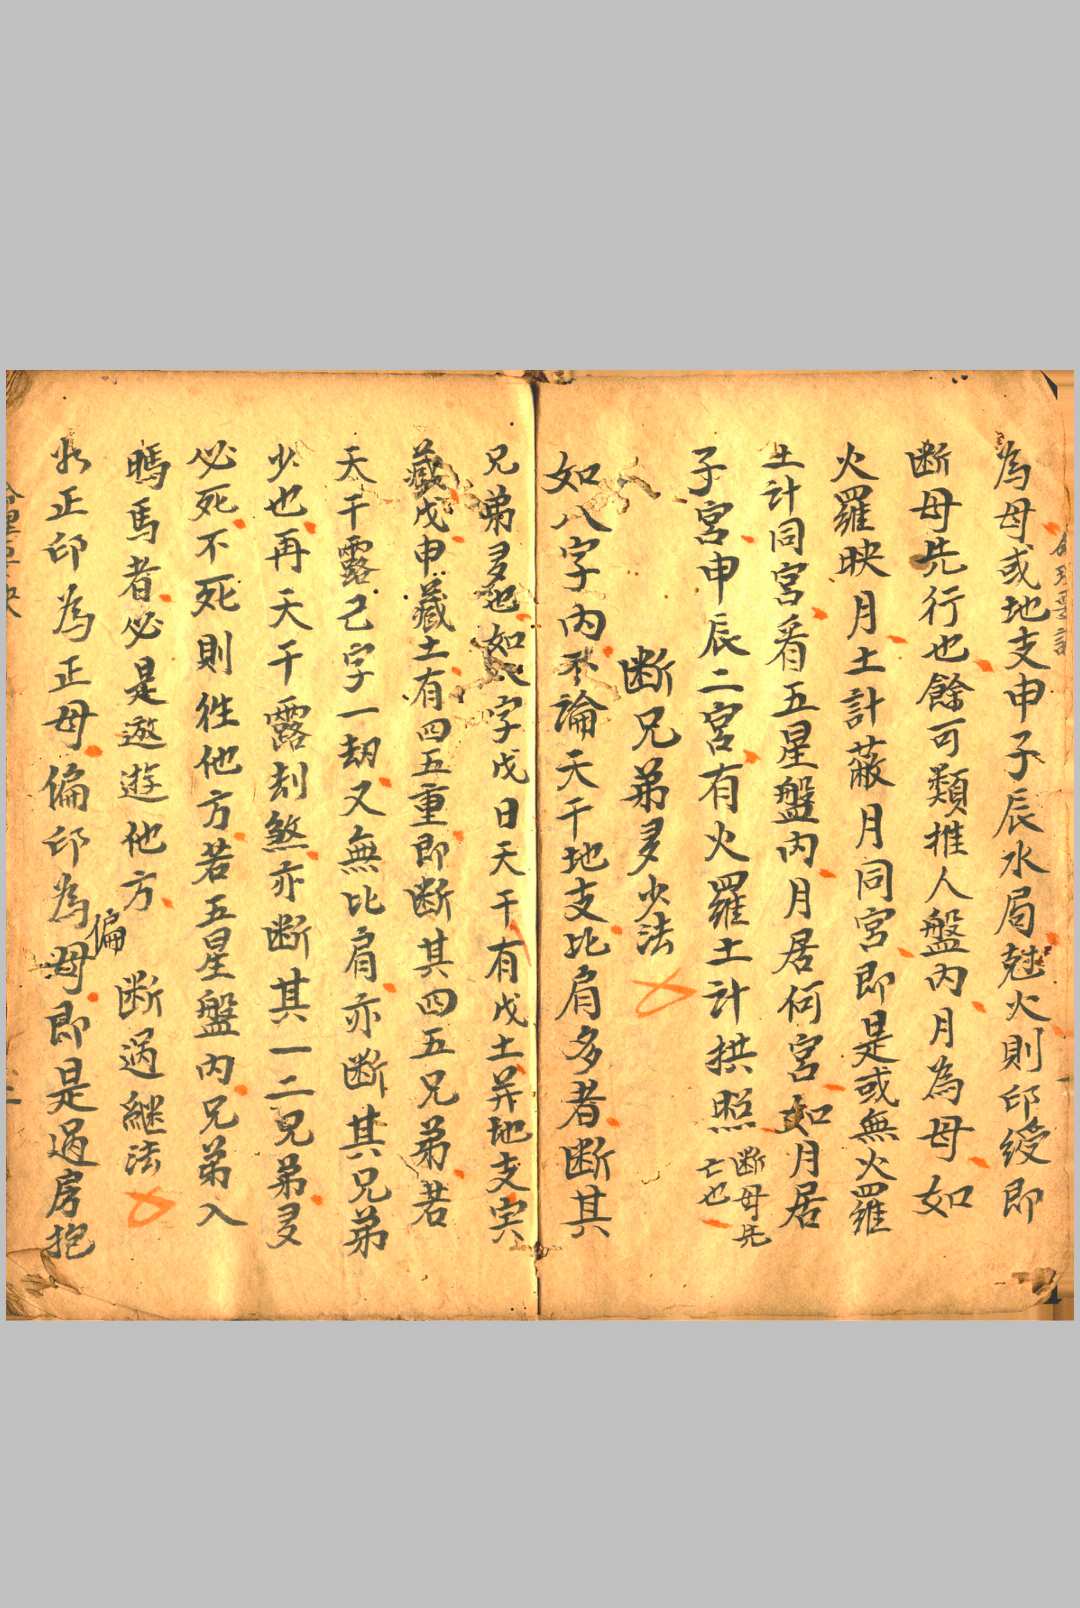 為母或地支申子辰水局尅火則印綬即
断母先行也餘可類推人盤內月為母如
火羅映月土計蔽月同宮即是或無火羅
土計同宮看五星盤內月居何宮如月居
子宮申辰二宮有火羅土計拱照断母先亡也
断兄弟多少法
如八字內不論天干地支比肩多者断其
兄弟多也如 字戊日天干有戊土並地支寅
藏戊申藏土有四五重即断其四五兄弟若
天干露己字一刼又無比肩亦断其兄弟
少也再天干露刦煞亦断其一二兄弟多
必死不死則徃他方若五星盤內兄弟入
馬者必是遨遊他方
断過繼法
正印為正母偏印為偏母即是過房抱